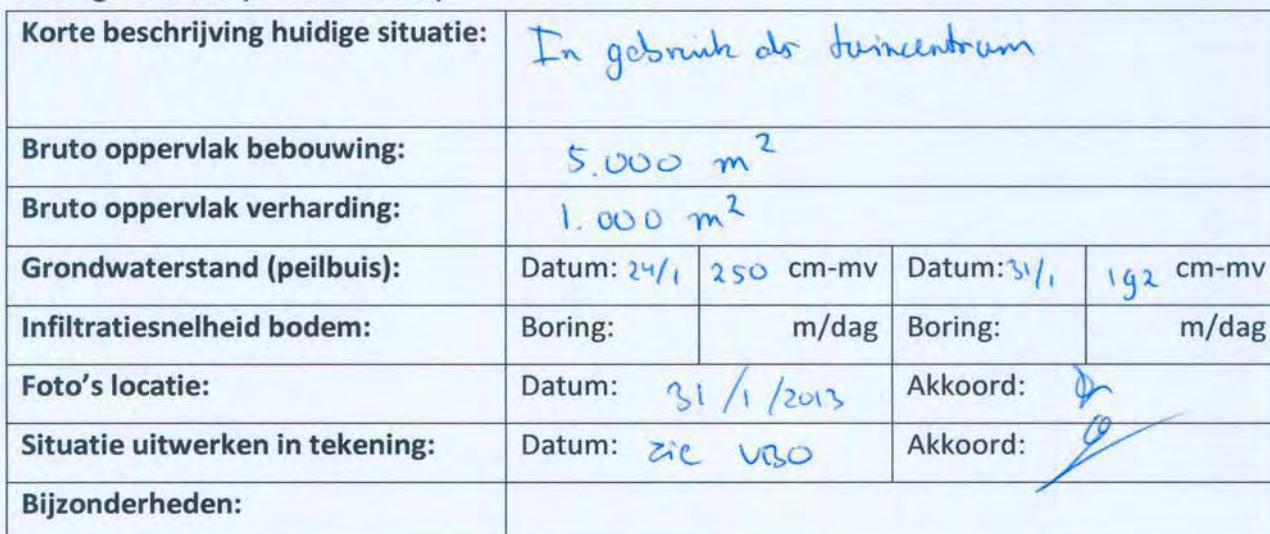 Korte beschrijving huidige situatie: In gebruik als tuincentrum
Bruto oppervlak bebouwing: 5.000 m²
Bruto oppervlak verharding: 1.000 m²
Grondwaterstand (peilbuis): Datum: 24/1 250 cm-mv Datum: 31/1 192 cm-mv
Infiltratiesnelheid bodem: Boring: m/dag Boring: m/dag
Foto's locatie: Datum: 31/1/2013 Akkoord:
Situatie uitwerken in tekening: Datum: zie VBO Akkoord:
Bijzonderheden: